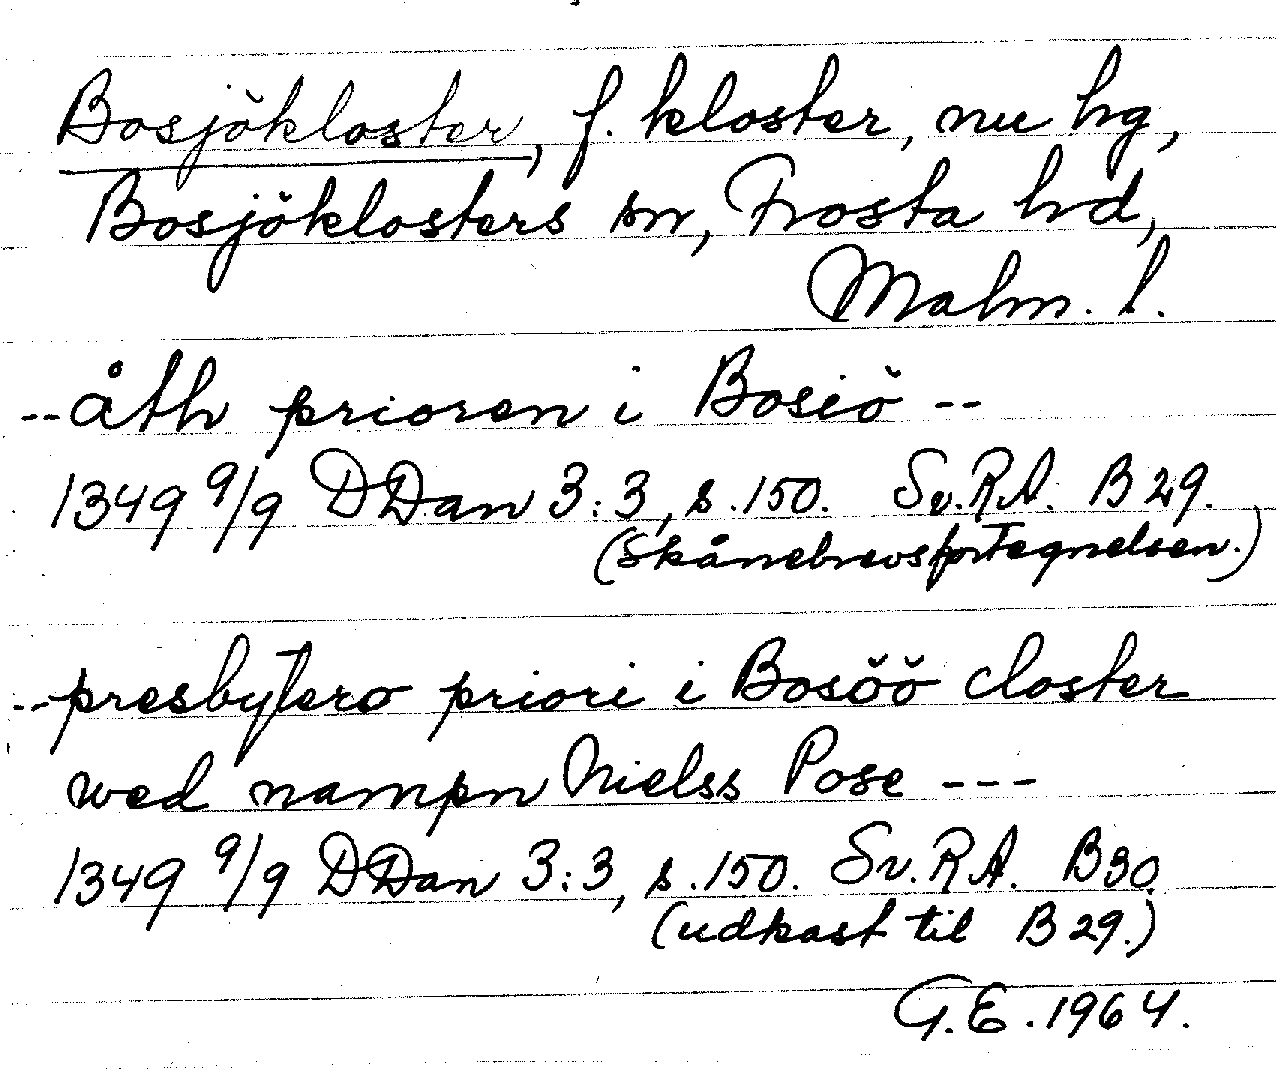 Bosjökloster, f. kloster, nu hg,
Bosjöklosters sn, Frosta hd,
Malm. l.
-- åth prioren i Bosiö --
1349 9/9 DDan 3:3, s. 150. Sv. R.A. B 29.
(Skånebrevsfortegnelsen.)
-- presbytero priori i Bosöö closter
wed nampn Nielss Pose ---
1349 9/9 DDan 3:3, s. 150. Sv. R.A. B 30.
(udkast til B 29.)
G.E. 1964.